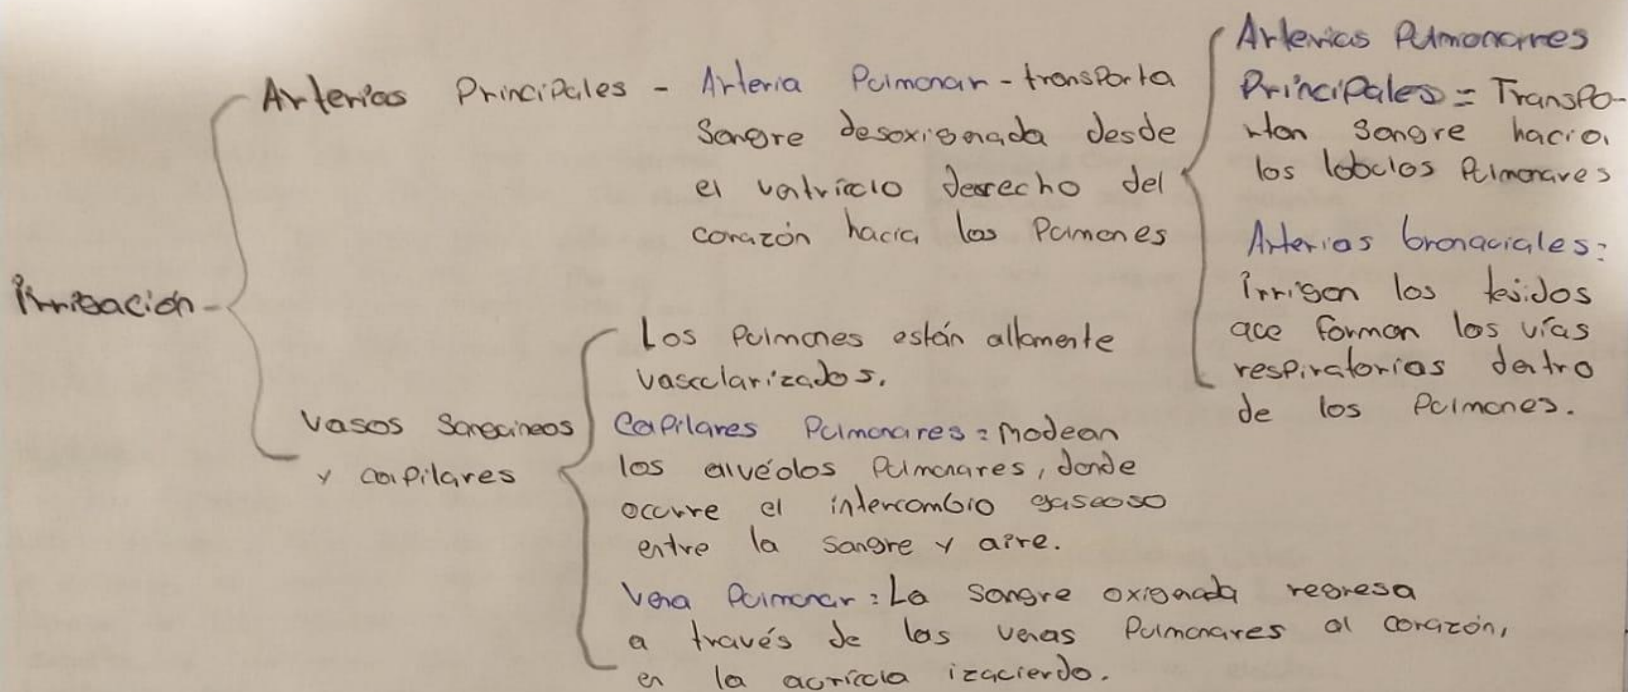 Irrigación
Arterias Principales - Arteria Pulmonar - transporta
sangre desoxigenada desde
el vetrículo derecho del
corazón hacia los Pumones
Arterias Pulmonares
Principales = Transpo-
rtan sangre hacia
los lobulos Pulmonares
Arterias bronquiales:
Irrigan los tejidos
que forman las vías
respiratorias dentro
de los Pulmones.
Vasos Sanguineos
y capilares
Los Pulmones están altamente
vascularizados.
Capilares Pulmonares: modean
los alvéolos Pulmonares, donde
ocurre el intercambio gaseoso
entre la sangre y aire.
Vena Pulmonar: La sangre oxigenada regresa
a través de las venas Pulmonares al corazón,
en la aurícula izquierdo.